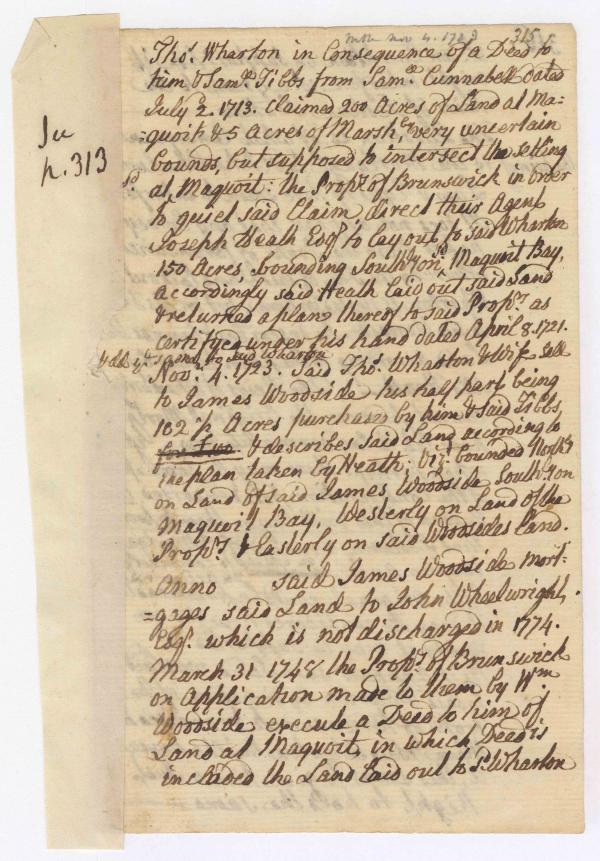 Nov 4. 1723
315
Thos. Wharton in Consequence of a Deed to
him & Saml. Tibbs from Saml. Cunnabell dated
July 2. 1713. claimed 200 Acres of Land at Ma=
=quoit & 5 Acres of Marsh, very uncertain
bounds, but supposed to intersect the settling
at Maquoit: the Propr. of Brunswick in order
to quiet said Claim, direct their Agent
Joseph Heath Esqr. to lay out to said Wharton
150 Acres, bounding Southy. on sd. Maquoit Bay,
Accordingly said Heath laid out said Land
& returned a plan thereof to said Propr. as
certifyed under his hand dated April 8. 1721.
said Wharton
Novr. 4. 1723. Said Thos. Wharton & Wife sell
to James Woodside his half part being
102 ½ Acres purchased by him & said Tibbs,
for Two & describes said Land according to
the plan taken by Heath; Viz. bounded North.
on Land of said James Woodside South.y on
Maquoit Bay, Westerly on Land of the
Propr. & Easterly on said Woodsides Land.
Anno said James Woodside mort=
=gages said Land to John Wheelwright,
Esqr. which is not discharged in 1774.
March 31 1748 the Propr. of Brunswick
on Application made to them by Wm.
Woodside execute a Deed to him of
Land at Maquoit, in which Deed is
included the Land laid out to sd. Wharton
p. 313